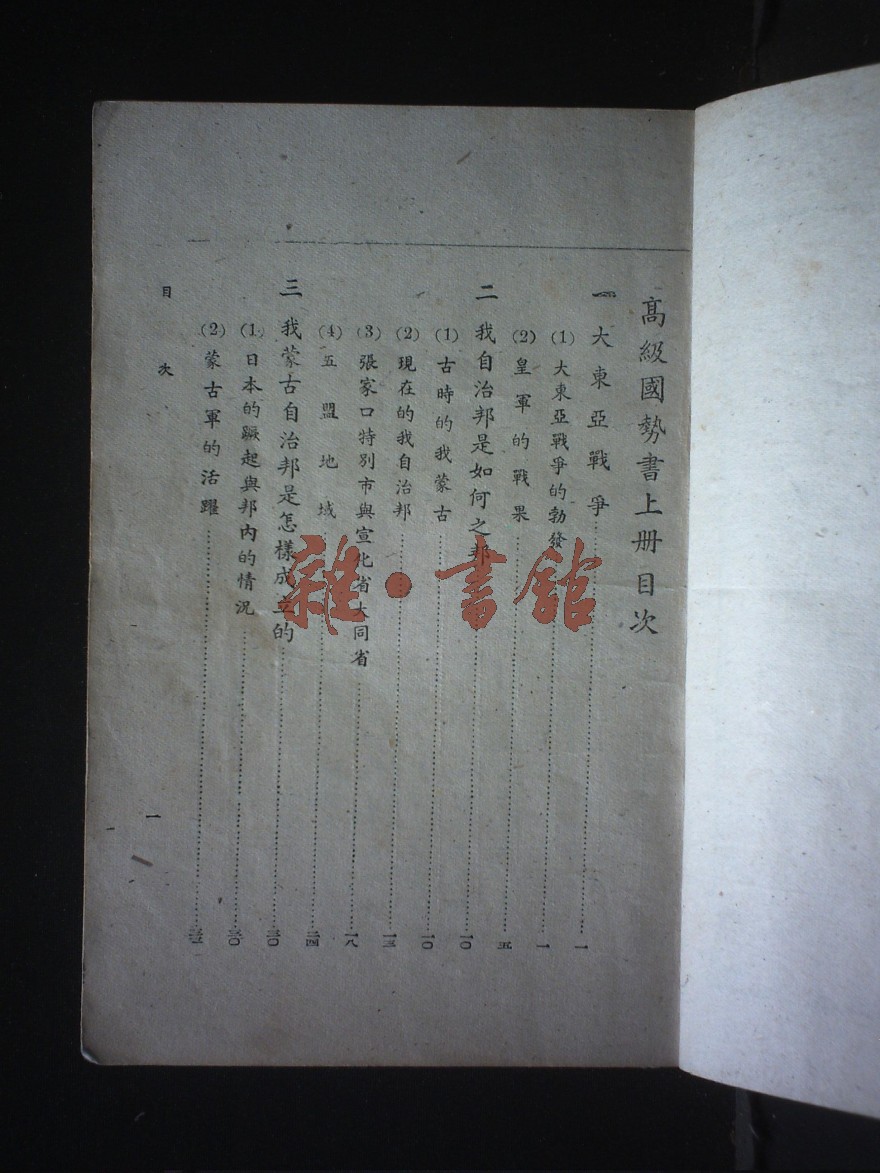 高級國勢書上册目次
一 大東亞戰爭……一
(1) 大東亞戰爭的勃發……一
(2) 皇軍的戰果……五
二 我自治邦是如何之邦……一〇
(1) 古時的我蒙古……一〇
(2) 現在的我自治邦……一三
(3) 張家口特別市與宣化省大同省……一八
(4) 五盟地域……二四
三 我蒙古自治邦是怎樣成立的……三〇
(1) 日本的蹶起與邦內的情況……三〇
(2) 蒙古軍的活躍……
目次
一
雜·書館